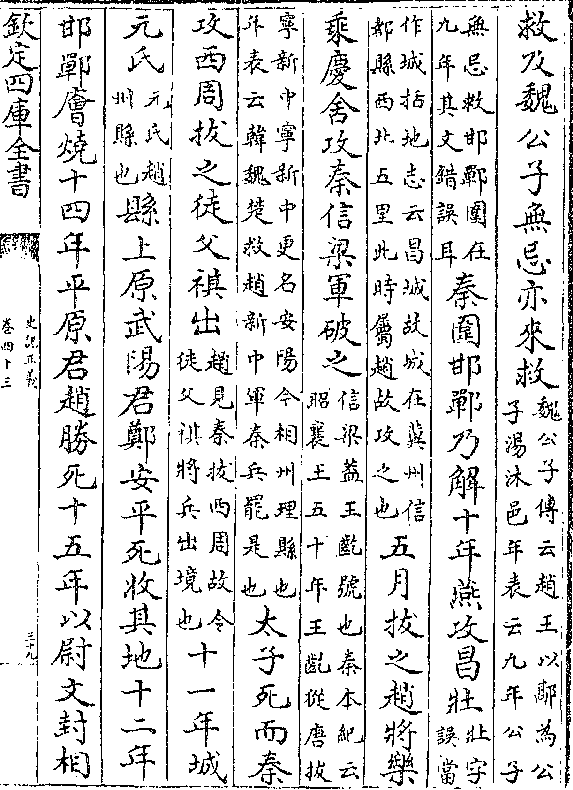 救及魏公子無忌亦來救魏公子傳云趙王以鄗為公子湯沐邑年表云九年公子
無忌救邯鄲圍在九年其文錯誤耳秦圍邯鄲乃解十年燕攻昌壯壯字誤當
作城括地志云昌城故城在冀州信都縣西北五里此時屬趙故攻之也五月拔之趙將樂
乘慶舍攻秦信梁軍破之信梁葢王齕號也秦本紀云昭襄王五十年王齕從唐拔
寧新中寧新中更名安陽今相州理縣也年表云韓魏楚救趙新中軍秦兵罷是也太子死而秦
攻西周拔之徒父祺出趙見秦拔西周故令徒父祺將兵出境也十一年城
元氏元氏趙州縣也縣上原武陽君鄭安平死收其地十二年
邯鄲廥燒十四年平原君趙勝死十五年以尉文封相
欽定四庫全書
史記正義
卷四十三
三十九